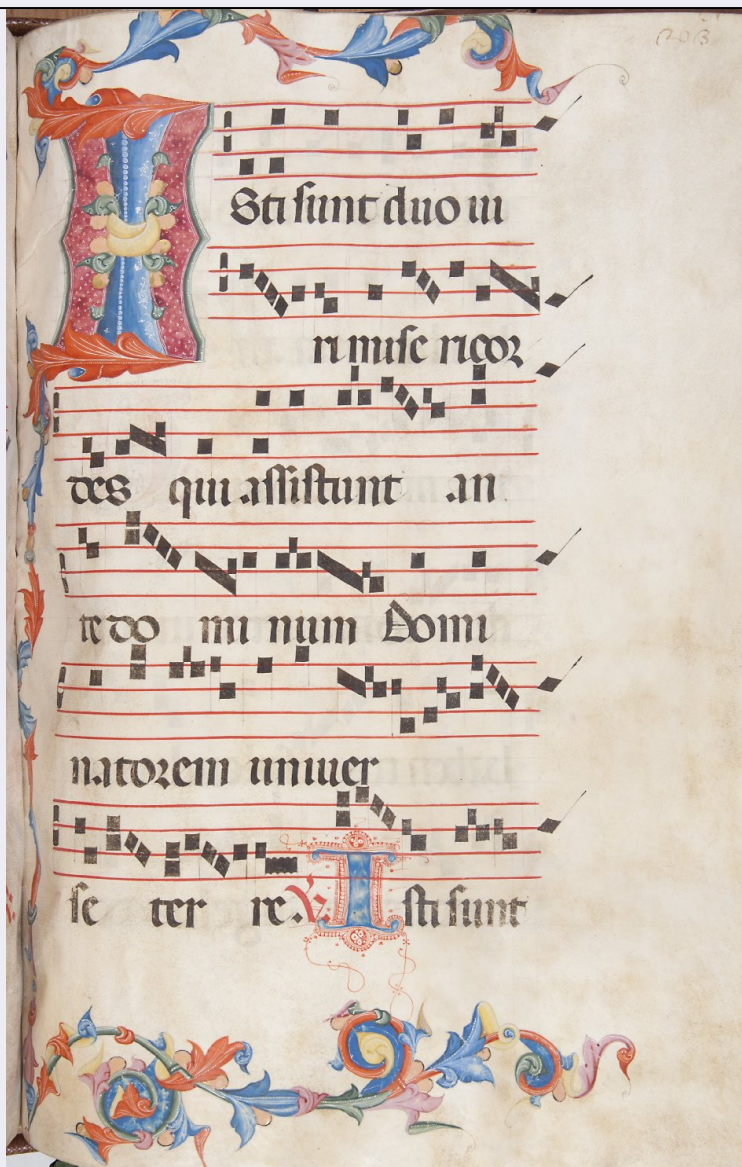 203
ISti sunt duo ui
ri mise ricor
des qui assistunt an
te do mi num Domi
natorem uniuer
se ter re. V. Isti sunt